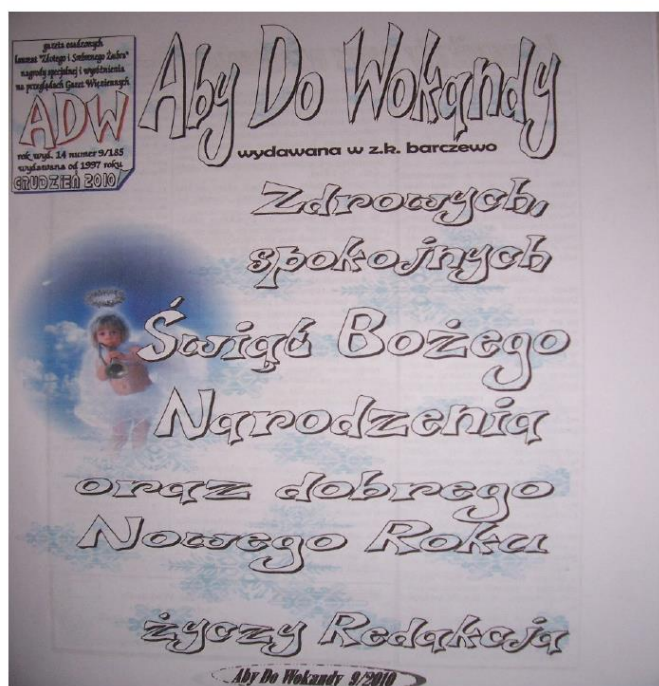 gazeta osadzonych
laureat "Złotego i Srebrnego Żebra"
nagrody specjalnej i wyróżnienia
na przeglądach Gazet Więziennych
ADW
rok wyd. 14 numer 9/185
wydawana od 1997 roku
GRUDZIEŃ 2010
Aby Do Wokandy
wydawana w z.k. barczewo
Zdrowych,
spokojnych
Świąt Bożego
Narodzenia
oraz dobrego
Nowego Roku
życzy Redakcja
Aby Do Wokandy 9/2010